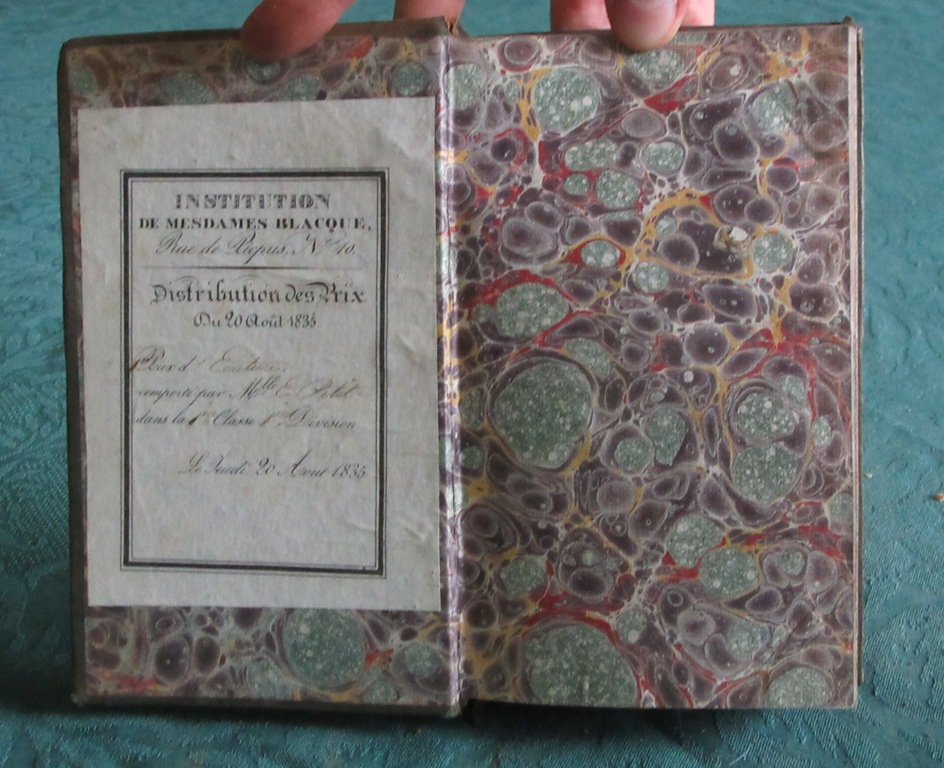 INSTITUTION
DE MESDAMES BLACQUE,
Rue de Picpus, Nº 40.
Distribution des Prix
Du 20 Août 1835
1er Prix d'Ecriture
remporté par Mlle E. Petit
dans la 1ère Classe 1ère Division
Le Jeudi 20 Aout 1835